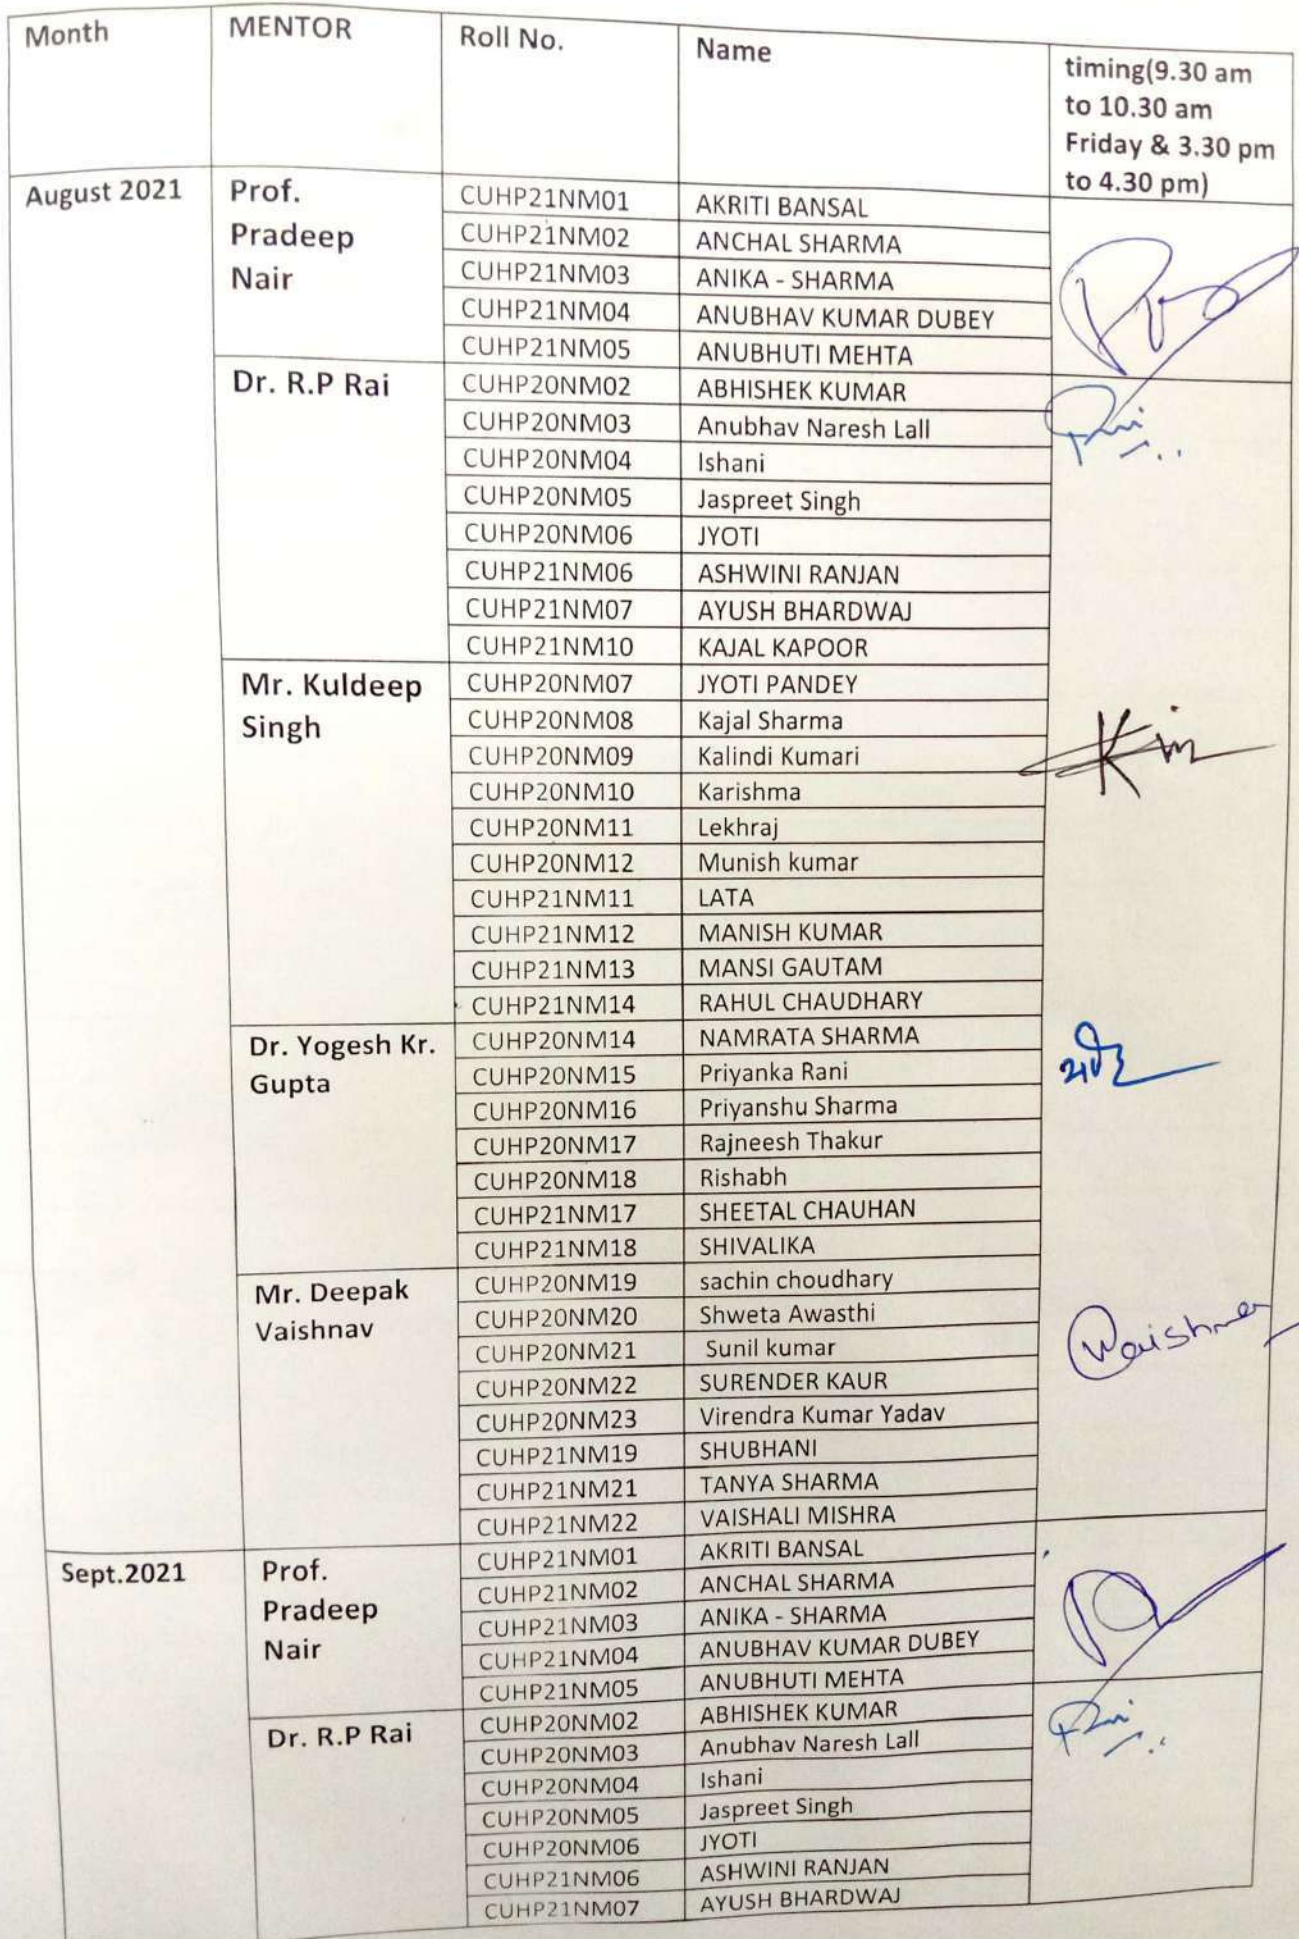 Month MENTOR Roll No. Name timing(9.30 am
to 10.30 am
Friday & 3.30 pm
to 4.30 pm)
August 2021 Prof. CUHP21NM01 AKRITI BANSAL
Pradeep CUHP21NM02 ANCHAL SHARMA
Nair CUHP21NM03 ANIKA - SHARMA
CUHP21NM04 ANUBHAV KUMAR DUBEY
CUHP21NM05 ANUBHUTI MEHTA
Dr. R.P Rai CUHP20NM02 ABHISHEK KUMAR
CUHP20NM03 Anubhav Naresh Lall
CUHP20NM04 Ishani
CUHP20NM05 Jaspreet Singh
CUHP20NM06 JYOTI
CUHP21NM06 ASHWINI RANJAN
CUHP21NM07 AYUSH BHARDWAJ
CUHP21NM10 KAJAL KAPOOR
Mr. Kuldeep CUHP20NM07 JYOTI PANDEY
Singh CUHP20NM08 Kajal Sharma
CUHP20NM09 Kalindi Kumari
CUHP20NM10 Karishma
CUHP20NM11 Lekhraj
CUHP20NM12 Munish kumar
CUHP21NM11 LATA
CUHP21NM12 MANISH KUMAR
CUHP21NM13 MANSI GAUTAM
CUHP21NM14 RAHUL CHAUDHARY
Dr. Yogesh Kr. CUHP20NM14 NAMRATA SHARMA
Gupta CUHP20NM15 Priyanka Rani
CUHP20NM16 Priyanshu Sharma
CUHP20NM17 Rajneesh Thakur
CUHP20NM18 Rishabh
CUHP21NM17 SHEETAL CHAUHAN
CUHP21NM18 SHIVALIKA
Mr. Deepak CUHP20NM19 sachin choudhary
Vaishnav CUHP20NM20 Shweta Awasthi
CUHP20NM21 Sunil kumar
CUHP20NM22 SURENDER KAUR
CUHP20NM23 Virendra Kumar Yadav
CUHP21NM19 SHUBHANI
CUHP21NM21 TANYA SHARMA
CUHP21NM22 VAISHALI MISHRA
Sept.2021 Prof. CUHP21NM01 AKRITI BANSAL
Pradeep CUHP21NM02 ANCHAL SHARMA
Nair CUHP21NM03 ANIKA - SHARMA
CUHP21NM04 ANUBHAV KUMAR DUBEY
CUHP21NM05 ANUBHUTI MEHTA
Dr. R.P Rai CUHP20NM02 ABHISHEK KUMAR
CUHP20NM03 Anubhav Naresh Lall
CUHP20NM04 Ishani
CUHP20NM05 Jaspreet Singh
CUHP20NM06 JYOTI
CUHP21NM06 ASHWINI RANJAN
CUHP21NM07 AYUSH BHARDWAJ